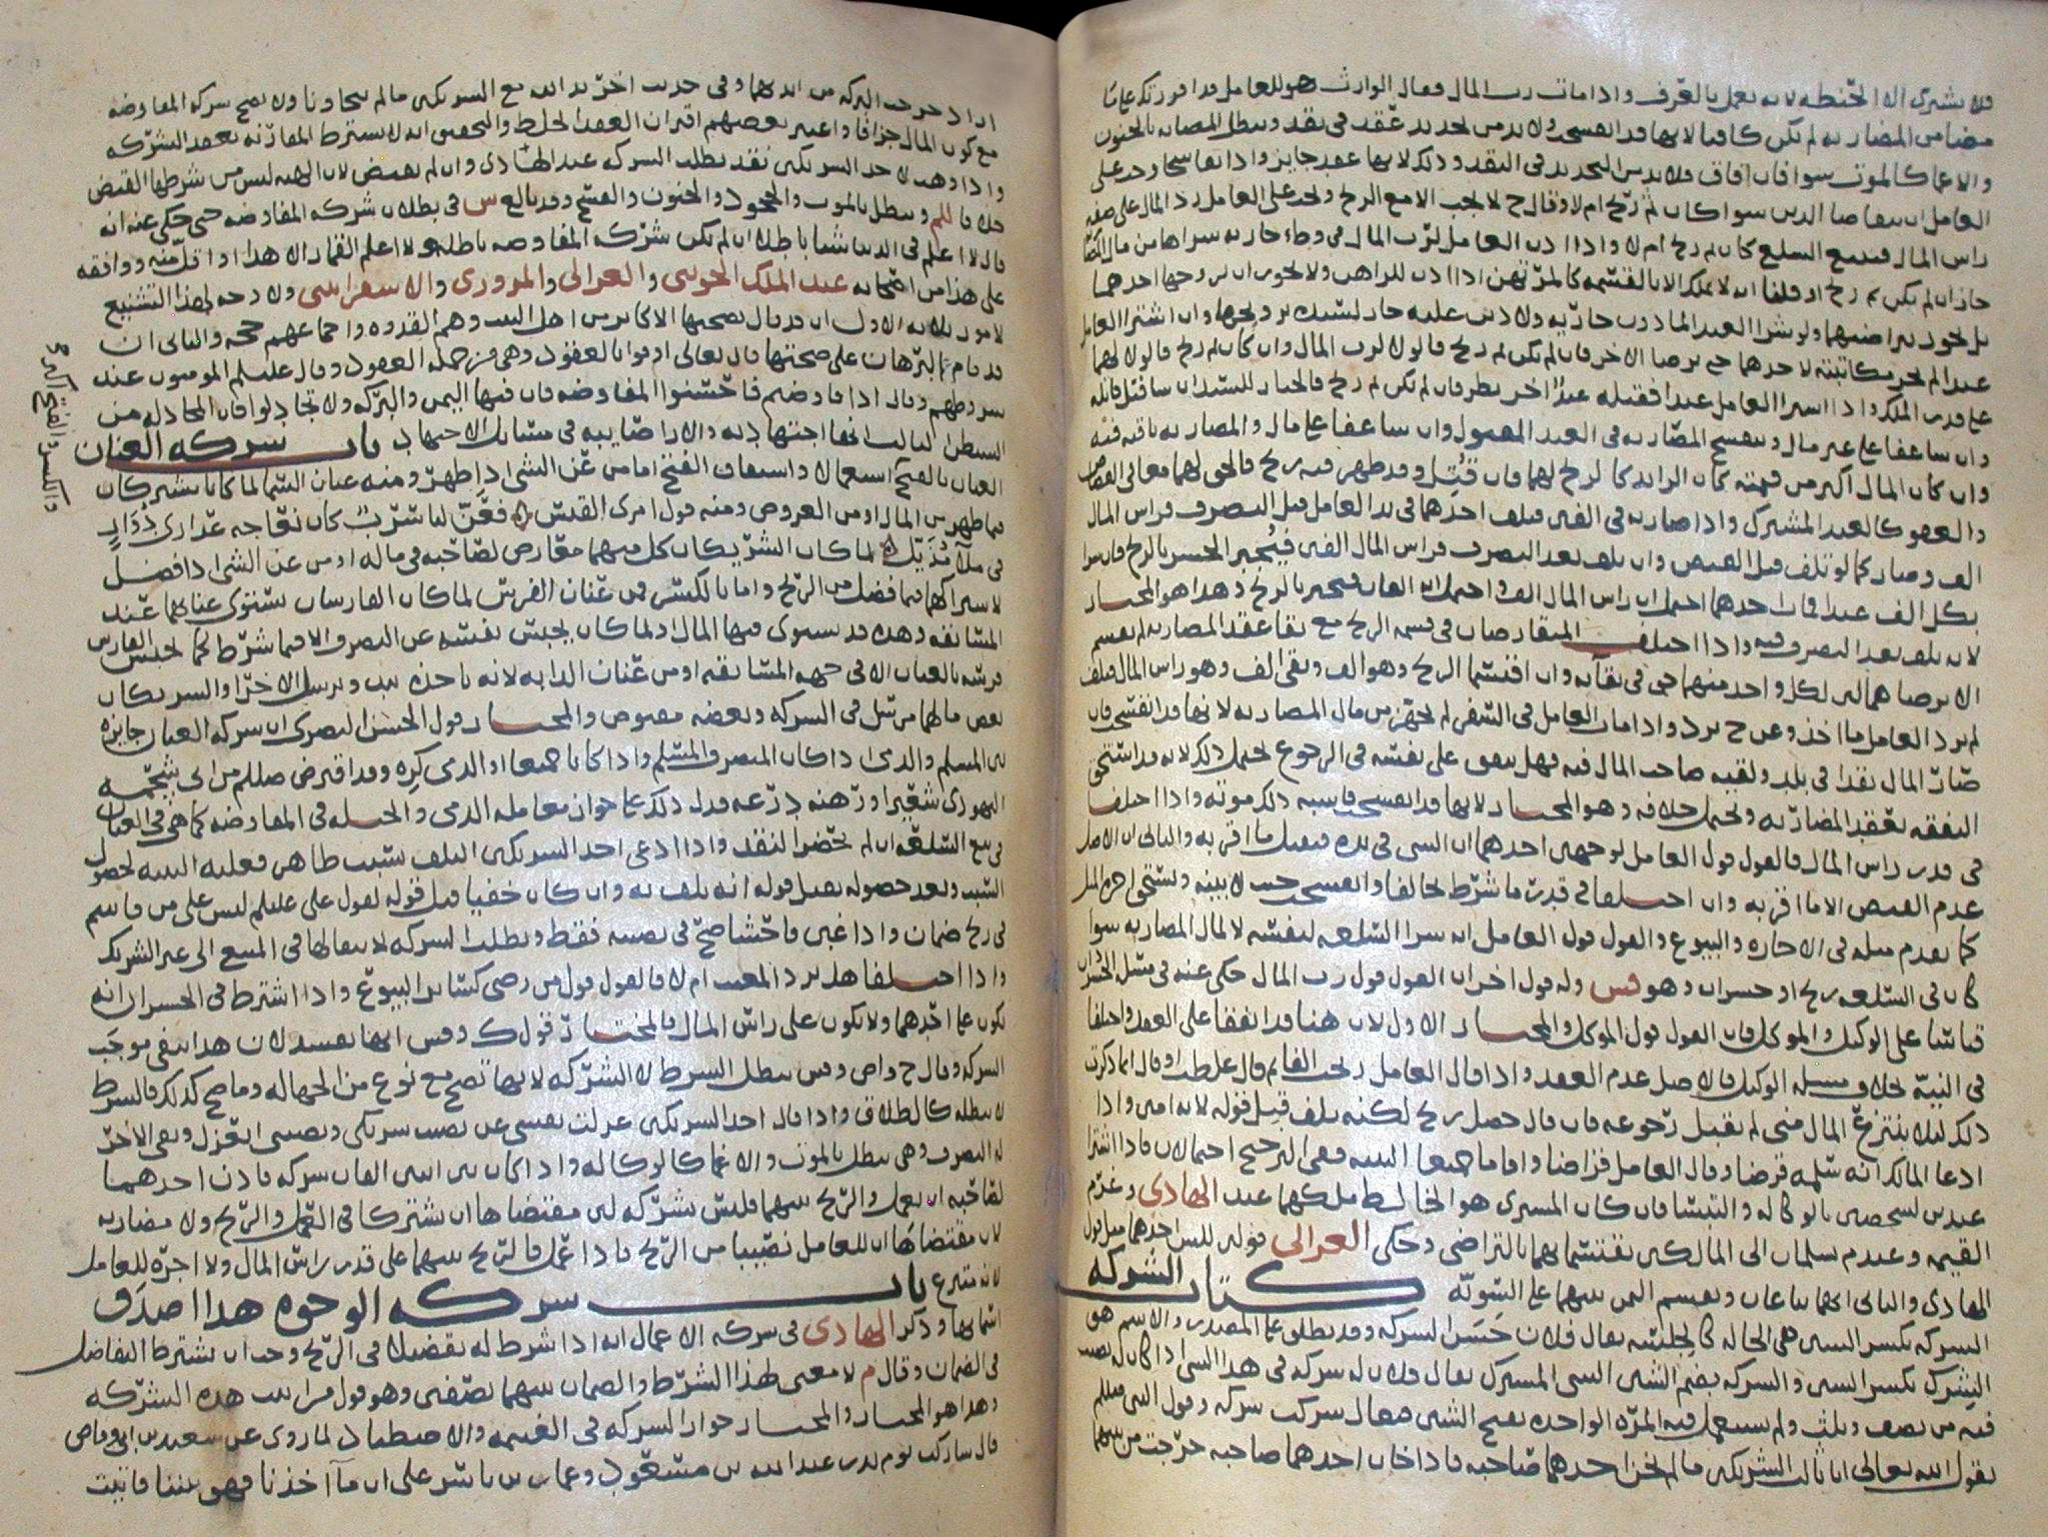 فلا يشتري الا الحنطة لانه يعمل بالعرف واذا مات رب المال فقال الوارث هو للعامل قد اقررتك على
مضا من المضاربة لم يكن كافيا لانها قد انفسخت ولا بد من تجديد عقد في نقد وتبطل المضاربة بالجنون
والاغما كالموت سوا فان افاق فلا بد من التجديد في النقد وذلك لانها عقد جايز واذا تفاسخا وجب على
العامل ان يتقاضا الدين سوا كان ثم ربح ام لا وقال ح لا يجب الا مع الربح ويجب على العامل رد المال على صفة
راس المال فيبيع السلع كان ثم ربح ام لا واذا اذن العامل لرب المال في وطء جارية شراها من مال
جاز ان لم يكن ثم ربح او قلنا انه لا يملك الا بالقسمة كالمرتهن اذا اذن للراهن ولا يجوز ان يزوجها احدهما
بل يجوز بتراضيهما ولو شرا العبد الماذون جارية ولا دين عليه جاز لسيده تزويجها وان اشترا العامل
عبدا لم يجز مكاتبته لاحدهما حتى يرضا الاخر فان لم يكن ثم ربح فالولا لرب المال وان كان ثم ربح فالولا لهما
على قدر الملك واذا اشترا العامل عبدا فقتله عبد اخر نظر فان لم يكن ثم ربح فالخيار للسيد ان شا قتل قاتله
وان شا عفا على غير مال وتنفسخ المضاربة في العبد المقتول وان شا عفا على مال والمضاربة باقية فيه
وان كان المال اكثر من قيمته كان الزايد كالربح لهما فان قُتِل وقد ظهر فيه ربح فالحق لهما معا في القصاص
والعفو كالعبد المشترك واذا ضاربه في الفين فتلف احدهما في يد العامل قبل التصرف فراس المال
الف وصار كما لو تلف قبل القبض وان تلف بعد التصرف فراس المال الفين فيُجبر الخسر بالربح فان شرا
بكل الف عبدا فمات احدهما احتمل ان راس المال الف واحتمل انه الفان فيجبر بالربح وهذا هو المختار
لانه تلف بعد التصرف فيه واذا اختلف المتقارضان في قسمة الربح مع بقا عقد المضاربة لم يقسم
الا برضاهما لان لكل واحد منهما حق في بقائه وان اقتسما الربح وهو الف وبقي الف وهو راس المال فتلف
لم يرد العامل ما اخذ وعن ح يرد واذا مات العامل في السفر لم يجهز من مال المضاربة لانها قد انفسخت فان
صار المال نقدا في بلد ولقيه صاحب المال فيه فهل ينفق على نفسه في الرجوع يحتمل ذلك لانه قد استحق
النفقة بعقد المضاربة ويحتمل خلافه وهو المختار لانها قد انفسخت فاشبه ذلك موته واذا اختلفا
في قدر راس المال فالقول قول العامل لوجهين احدهما ان الشي في يده فيقبل ما اقر به والثاني ان الاصل
عدم القبض الا ما اقر به وان اختلفا في قدر ما شرط تحالفا وانفسخ حيث لا بينة ويستحق اجرة المثل
كما تقدم مثله في الاجارة والبيوع والقول قول العامل انه شرا السلعة لنفسه لا لمال المضاربة سوا
كان في السلعة ربح او خسران وهو قس وله قول اخر ان القول قول رب المال حكي عنه في مثل الخسران
قياسا على الوكيل والموكل فان القول قول الموكل والمختار الاول لان هنا قد اتفقا على العقد واختلفا
في النية بخلاف مسيلة الوكيل فالاصل عدم العقد واذا قال العامل ربحت الفا ثم قال غلطت او قال انما ذكرت
ذلك ليلا ينتزع المال مني لم يقبل رجوعه فان قال حصل ربح لكنه تلف قبل قوله لانه امين واذا
ادعا المالك انه سلمه قرضا وقال العامل قراضا واقاما جميعا البينة ففي الترجيح احتمالان فاذا اشترا
عبدين لشخصين بالوكالة والتبسا فان كان المشتري هو الخالط ملكهما عند الهادي وغرم
القيمة وعند م يسلمان الى المالكين يقتسمانهما بالتراضي وحكى الغزالي قولين احدهما مثل قول
الهادي والثاني انهما يباعان ويقسم الثمن بينهما على السوية كتاب الشركة
الشركة بكسر الشين هي الحالة كالجلسة يقال فلان حَسَن الشركة وقد يطلق على المصدر والاسم هو
الشِرك بكسر الشين والشركة بضم الشين الشي المشترك يقال فلان له شركة في هذا الشي اذا كان له نصيب
فيه من نصف وثلث ولم يستعمل فيه المرة الواحدة بفتح الشين فيقال شركت شركة وقول النبي صللم
يقول الله تعالى انا ثالث الشريكين ما لم يخن احدهما صاحبه فاذا خان احدهما صاحبه خرجت من بينهما
اراد خرجت البركة من ايديهما وفي حديث اخر يد الله مع الشريكين ما لم يتخاونا ولا يصح شركة المفاوضة
مع كون المال جزافا واعتبر بعضهم اقتران العقد الخلط والتحقيق انه لا يشترط المقارنة بعقد الشركة
واذا وهب لاحد الشريكين نقد بطلت الشركة عند الهادي وان لم يقبض لان الهبة ليس من شرطها القبض
خلافا للم وتبطل بالموت والجحود والجنون والفسخ وقد بالغ س في بطلان شركة المفاوضة حتى حكي عنه انه
قال لا اعلم في الدنيا شيا باطلا ان لم يكن شركة المفاوضة باطلة ولا اعلم القمار الا هذا او اقل منه ووافقه
على هذا من اصحابه عبد الملك الجويني والغزالي والمروزي والاسفرايني ولا وجه لهذا التشنيع
لامور ثلاثة الاول ان قد قال بصحتها الاكابر من اهل البيت وهم القدوة واجماعهم حجة والثاني ان
قد قام البرهان على صحتها قال تعالى اوفوا بالعقود وهي من جملة العقود وقال عليلم المومنون عند
شروطهم وقال اذا فاوضتم فاحسنوا المفاوضة فان فيها اليمن والبركة ولا تجادلوا فان المجادلة من
الشيطان الثالث انها اجتهادية والارا صايبة في مسايل الاجتهاد باب شركة العنان
العنان بالفتح استعمالا واشتقاق الفتح اما من عنّ الشي اذا ظهر ومنه عنان السما لما كانا يشتركان
فيما ظهر من المال او من العروض ومنه قول امرئ القيس فعنّ لنا سرب كان نعاجه عذارى دُوَارٍ
في ملآ مذيل لما كان الشريكان كل منهما معارض لصاحبه في ماله او من عن الشي اذا فضل
لاشتراكهما فيما فضل من الربح واما بالكسر فمن عنان الفرس لما كان الفارسان يستوي عنانهما عند
المسابقة وهذه قد يستوي فيها المال او لما كان يحبس نفسه عن التصرف الا فيما شرط كما يحبس الفارس
فرسه بالعنان الا في جهة المسابقة او من عنان الدابة لانه ياخذ بيد ويرسل الاخرى والشريكان
بعض مالهما مرسل في الشركة وبعضه مقبوض والمختار قول الحسن البصري ان شركة العنان جايزة
بين المسلم والذمي اذا كان المتصرف المسلم واذا كانا جميعا او الذمي كره وقد اقترض صللم من ابي شحمة
اليهودي شعيرا ورهنه درعه فدل ذلك على جواز معاملة الذمي والحيلة في المفاوضة كما هي في العنان
في بيع السلعة ان لم يحضر النقد واذا ادعى احد الشريكين التلف بسبب ظاهر فعليه البينة لحصول
السبب وبعد حصوله يقبل قوله انه تلف به وان كان خفيا قبل قوله لقول علي عليلم ليس على من قاسم
في ربح ضمان واذا غبن فاحشا صح في نصيبه فقط وبطلت الشركة لانتقالها في المبيع الى غير الشريك
واذا اختلفا هل يرد المعيب ام لا فالقول قول من رضي كساير البيوع واذا اشترط في الخسران انه
يكون على احدهما ولا يكون على راس المال فالمختار قول ك وقس انها تفسد لان هذا ينفي موجب
الشركة وقال ح واص وقس يبطل الشرط لا الشركة لانها تصح مع نوع من الجهالة وما صح كذلك فالشرط
لا يبطله كالطلاق واذا قال احد الشريكين عزلت نفسي عن نصيب شريكي ونصيبي انعزل وبقي الاخر
له التصرف وهي تبطل بالموت والاغما كالوكالة واذا كان بين اثنين الفان شركة فاذن احدهما
لصاحبه ان يعمل والربح بينهما فليس بشركة لان مقتضاها ان يشتركا في العمل والربح ولا مضاربة
لان مقتضاها ان للعامل نصيبا من الربح فاذا عمل فالربح بينهما على قدر راس المال ولا اجرة للعامل
لانه متبرع باب شركة الوجوه هذا اصدق
اسمائها وذكر الهادي في شركة الاعمال انه اذا شرط له تفضيلا في الربح وجب ان يشترط التفاضل
في الضمان وقال م لا معنى لهذا الشرط والضمان بينهما نصفين وهو قول من اثبت هذه الشركة
وهذا هو المختار والمختار جواز الشركة في الغنيمة والاصطياد لما روي عن سعيد بن ابي وقاص
قال شاركت يوم بدر عبد الله بن مسعود وعمار بن ياسر على ان ما اخذنا فهو بيننا فاتيت
والكسر والفتح